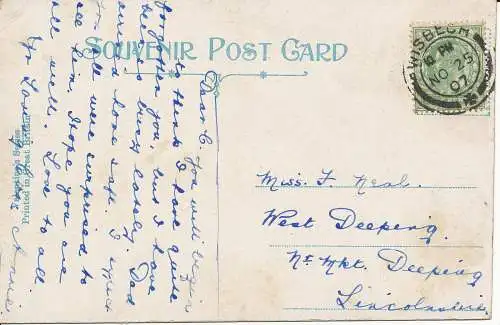 SOUVENIR POST CARD
WISBECH
PM
NO 25
07
Dear C you will begin
to think I have quite
forgotten you, but I have
been busy lately. Dad
arrived home safe. I
we all were surprised to
see him. Hope you are
all well. Love to all
Yr Lov
Annie
Series
Printed in Great Britain
Miss. F. Neal.
West Deeping.
Nr. Mkt. Deeping
Lincolnshire.